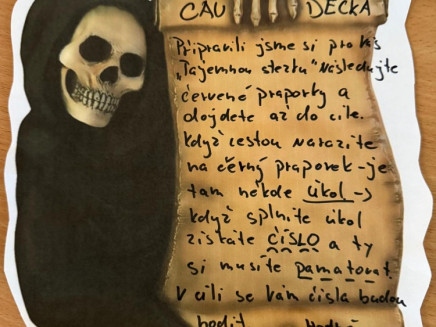 CAU DĚCKA
Připravili jsme si pro Vás
„Tajemnou stezku" Následujte
červené praporky a
dojdete až do cíle.
Když cestou narazíte
na černý praporek - je
tam někde úkol ->
když splníte úkol
získáte ČÍSLO a ty
si musíte pamatovat.
V cíli se Vám čísla budou
hodit